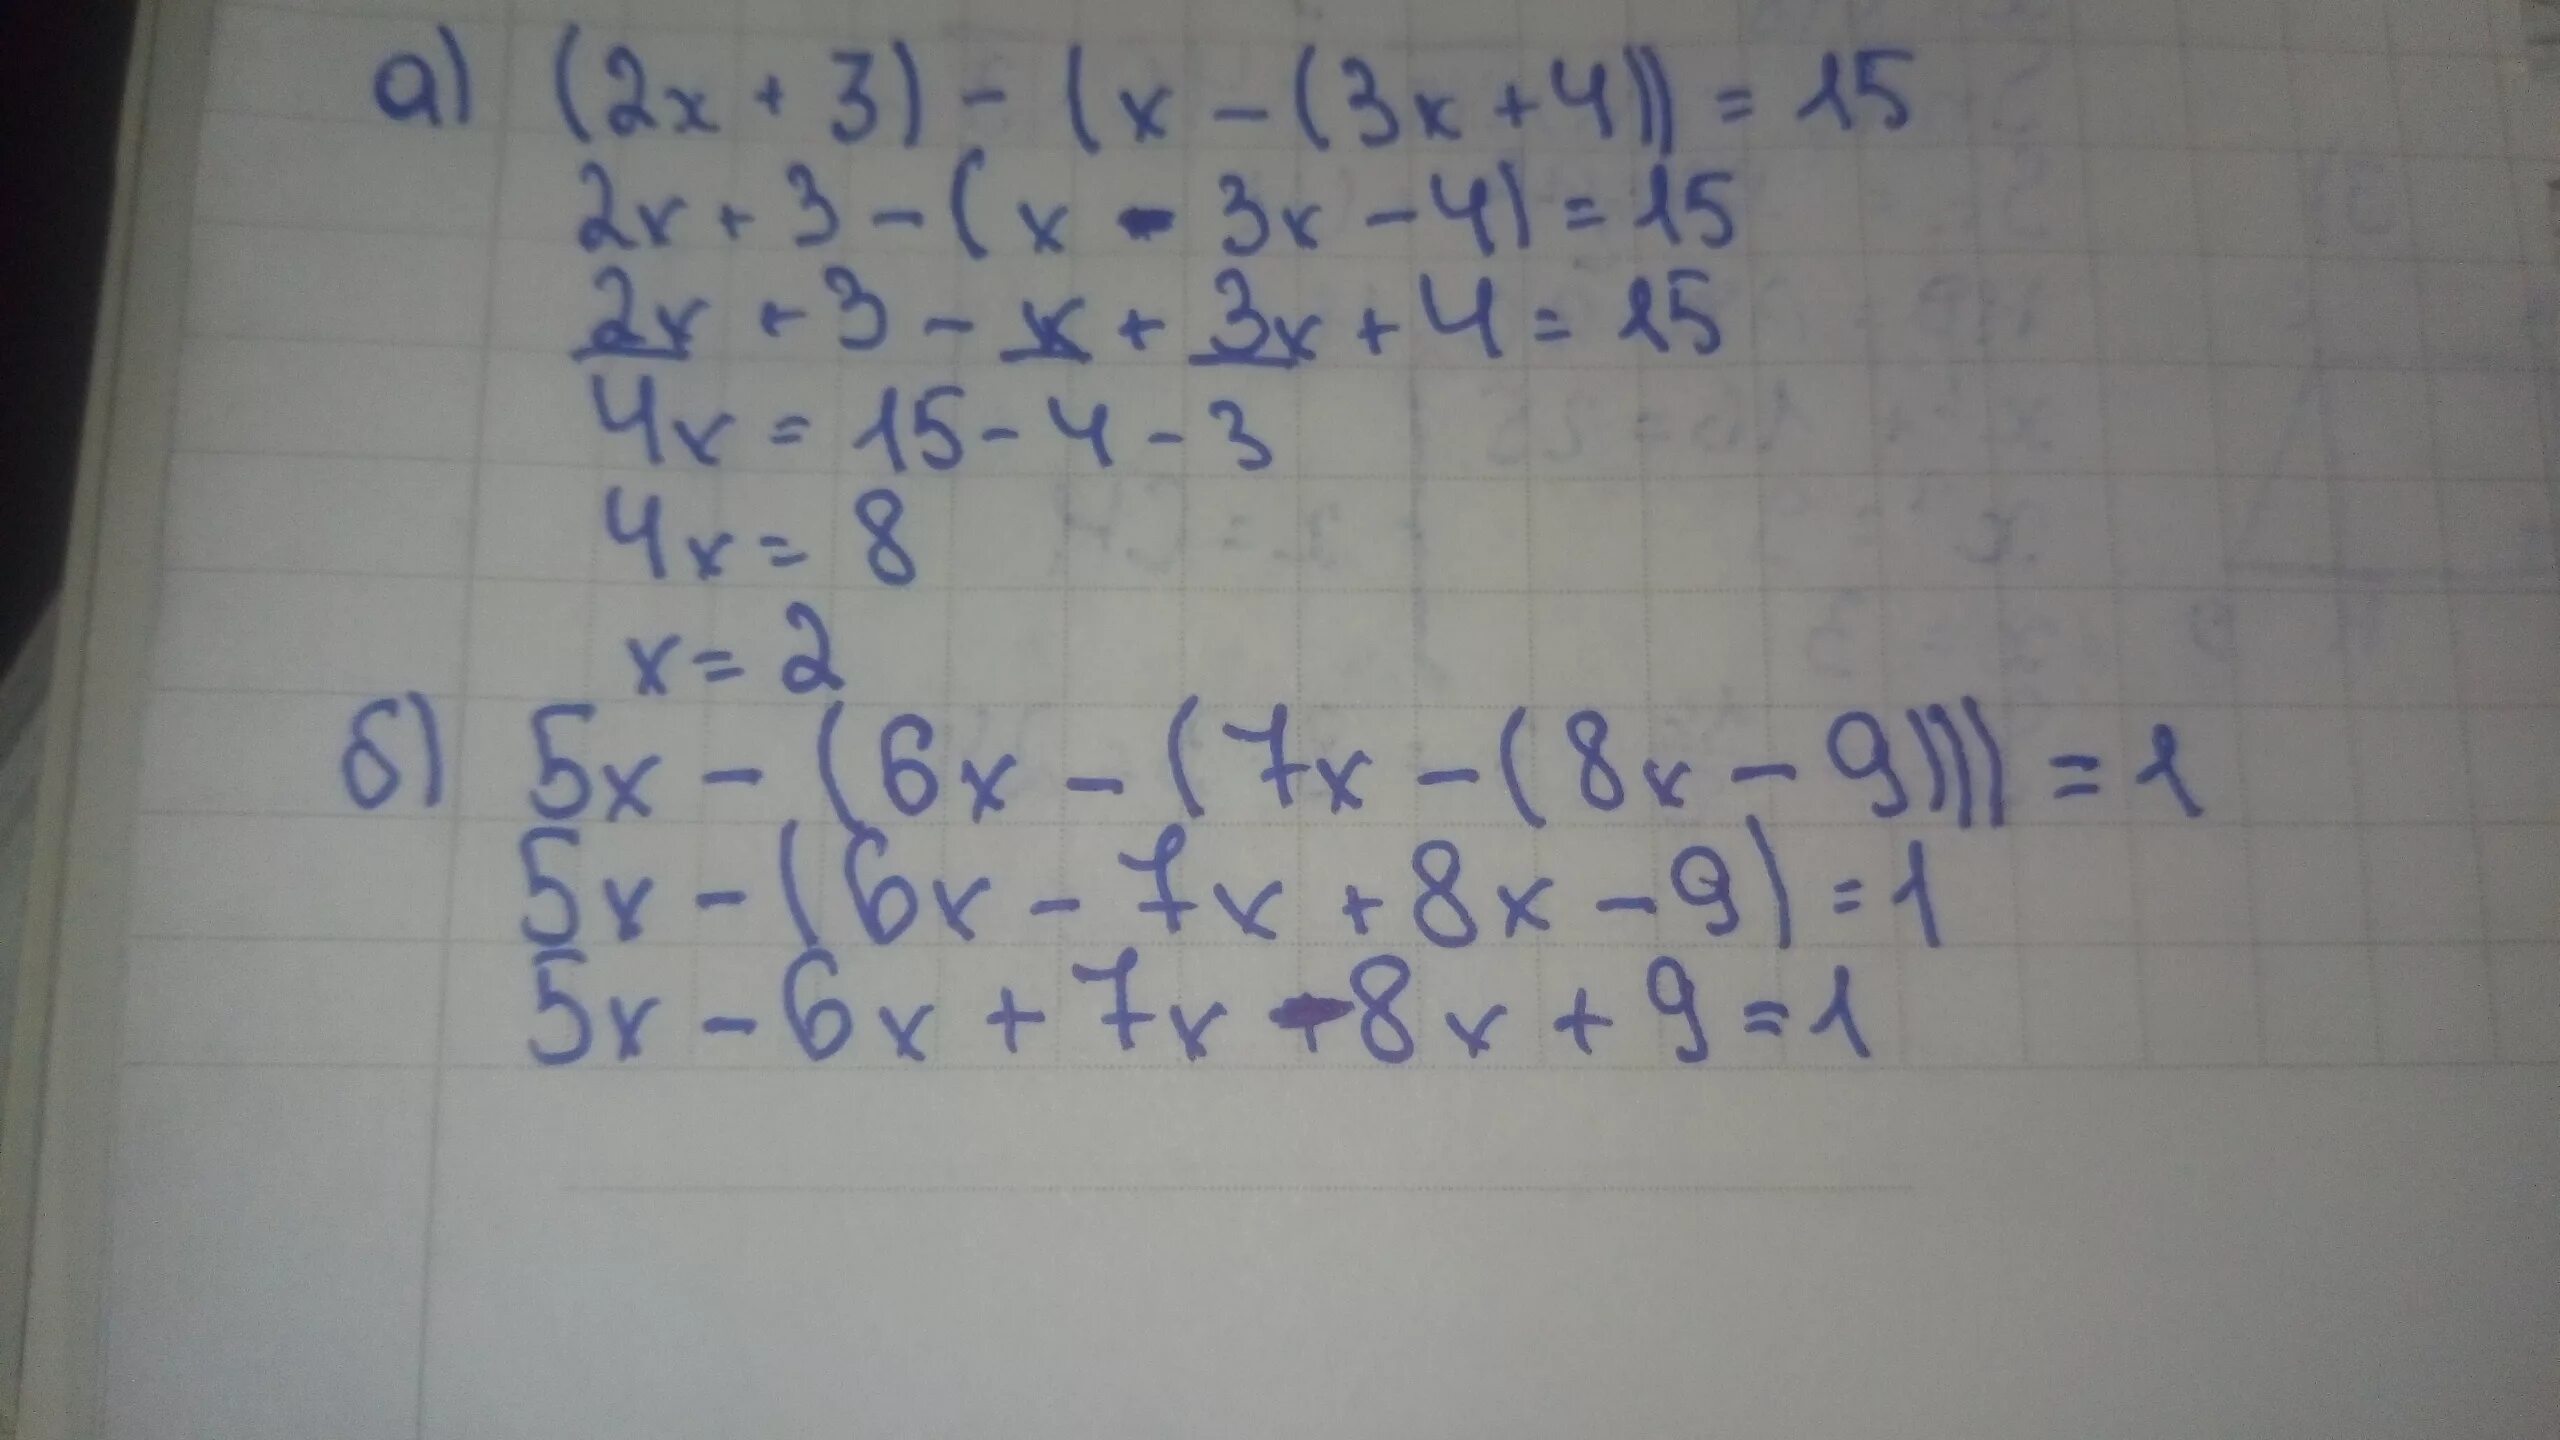 а) (2x + 3) - (x - (3x + 4)) = 15
2x + 3 - (x - 3x - 4) = 15
2x + 3 - x + 3x + 4 = 15
4x = 15 - 4 - 3
4x = 8
x = 2
б) 5x - (6x - (7x - (8x - 9))) = 1
5x - (6x - 7x + 8x - 9) = 1
5x - 6x + 7x - 8x + 9 = 1